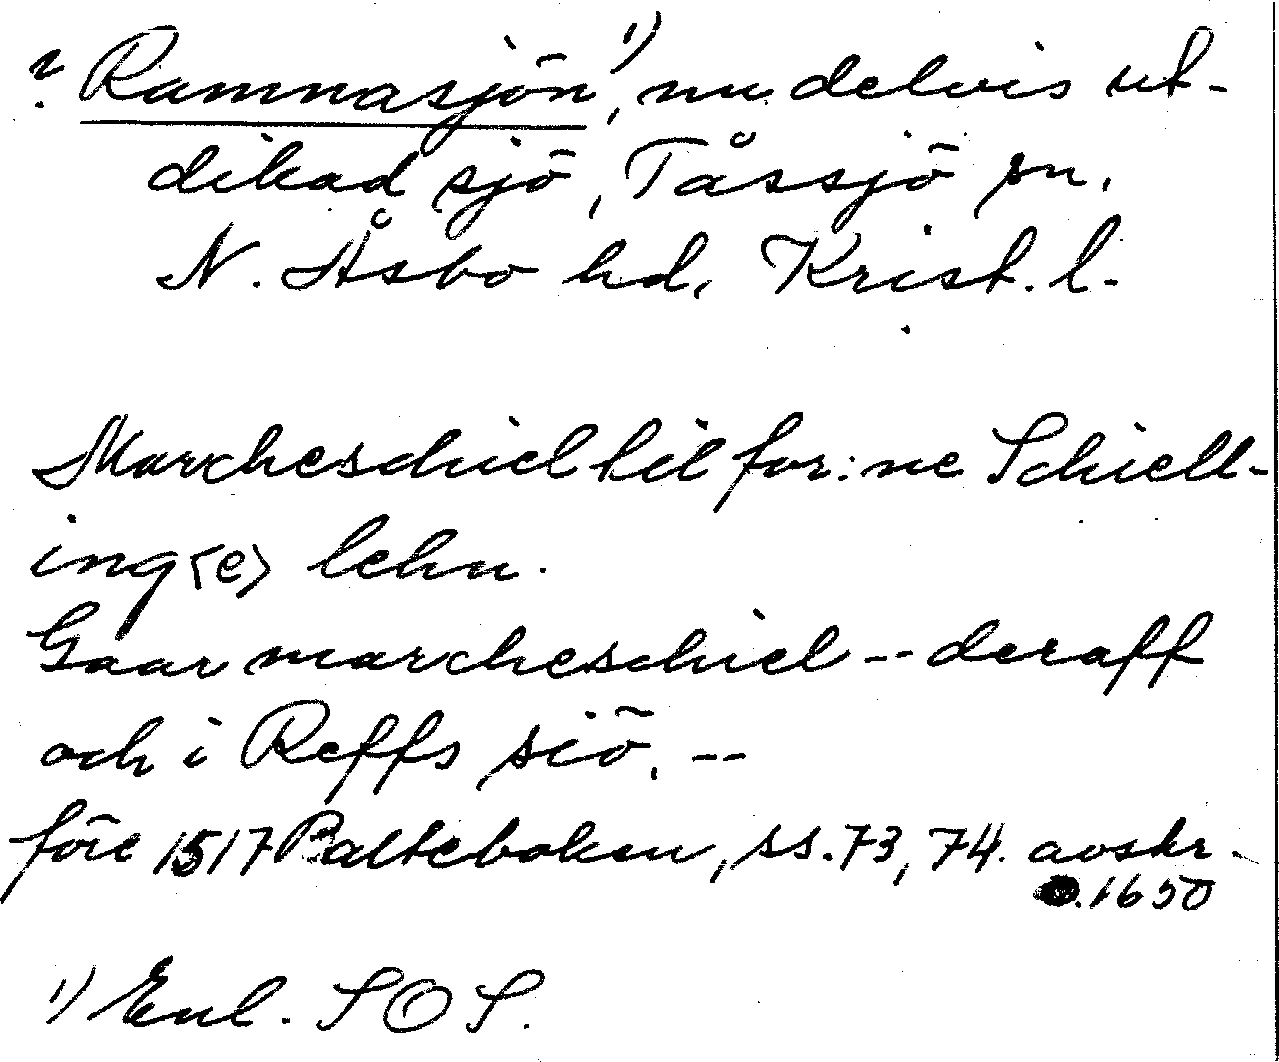 ? Ramnasjön¹⁾, nu delvis ut-
dikad sjö, Tåssjö sn,
N. Åsbo hd, Krist. l.
Marcheschiel til for:ne Schiell-
ing<e> lehn.
Gaar marcheschiel -- deraff
och i Reffs siö, --
före 1517 Palteboken, ss. 73, 74. avskr.
.1650
¹⁾ Enl. SOS.